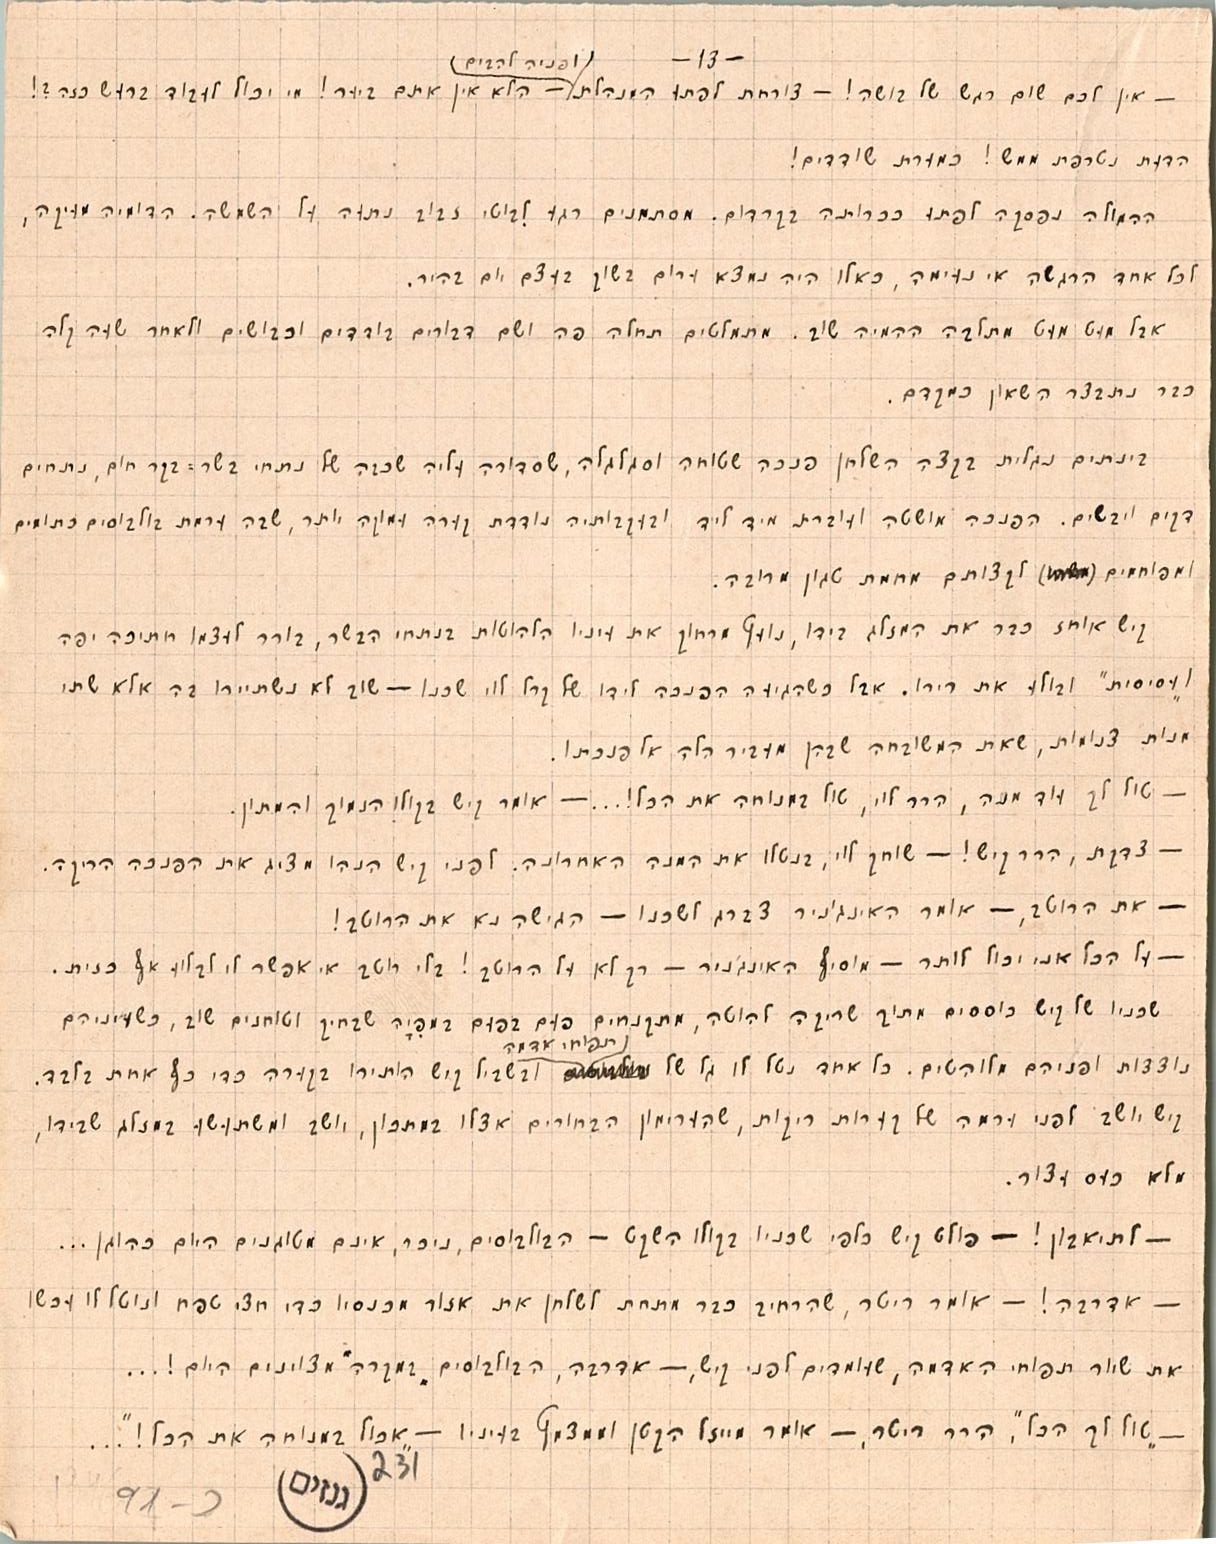 —13—
(ופניה להבים)
— אין לכם שום רגש של בושה! — צורחת לפתע המנהלת — הלא אין אתם ביער! מי יכול לעבוד ברעש כזה?!
הדעת נטרפת ממש! כמערת שודדים!
ההמולה נפסקה לפתע ככרותה בקרדום. מסתמנים רגע לבוטי זבוב נתעה על השמשה. הדומיה מעיקה,
לכל אחד הרגשה אי נעימה, כאלו היה נמצא ערום בשוק בעצם יום בהיר.
אבל מעט מעט מתלבה ההמיה שוב. מתמלטים תחלה פה ושם דבורים בודדים וכבושים ולאחר שעה קלה
כבר נתבצר השאון כמקדם.
בינתים נגלית בקצה השלחן פנכה שטוחה וסגלגלה, שסדורה עליה שכבה של נתחי בשר-בקר חום, נתחים
דקים ויבשים. הפנכה מושטה ועוברת מיד ליד ובעקבותיה נודדת קערה עמוקה יותר, שבה ערמת בולבוסים כתומים
ומפוחמים לקצותם מחמת טגון מרובה.
קיש אוחז כבר את המזלג בידו, נועץ מרחוק את עיניו הלהוטות בנתחי הבשר, בורר לעצמו חתיכה יפה
ו"עסיסית" ובולע את רירו. אבל כשהגיעה הפנכה לידו של קרל לוי שכנו — שוב לא נשתיירו בה אלא שתי
מנות צנומות, שאת המשובחה שבהן מעביר הלה אל פנכתו.
— טול לך עוד מנה, הרר לוי, טול במנוחה את הכל!... — אומר קיש בקולו הנמוך והמתון.
— צדקת, הרר קיש! — שוחק לוי, בנטלו את המנה האחרונה. לפני קיש הנהו מציג את הפנכה הריקה.
— את הרוטב, — אומר האינג'ניר צברג לשכנו — הגישה נא את הרוטב!
— על הכל אני יכול לותר — מוסיף האינג'ניר — רק לא על הרוטב! בלי רוטב אי אפשר לו לבלוע אף כזית.
שכניו של קיש כוססים מתוך שריקה להוטה, מתקנחים פעם בפעם במפיה שבחיק וטוחנים שוב, כשעיניהם
(תפוחי אדמה
נוצצות ופניהם מלוהטים. כל אחד נטל לו גל של ובשביל קיש הותירו בקערה כדי כף אחת בלבד.
קיש יושב לפני ערמה של קערות ריקות, שהערימון הבחורים אצלו במתכון, יושב ומשתעשע במזלג שבידו,
מלא כעס עצור.
— לתיאבון! — פולט קיש כלפי שכניו בקולו השקט — הבולבוסים, ניכר, אינם מטוגנים היום כהוגן...
— אדרבה! — אומר ריטר, שהרחיב כבר מתחת לשלחן את אזור מכנסיו כדי חצי טפח ונוטל לו עכשו
את שיור תפוחי האדמה, שעומדים לפני קיש, — אדרבה, הבולבוסים "במקרה" מצוינים היום!...
— "טול לך הכל", הרר ריטר, — אומר מייזל הקטן וממצמץ בעיניו — "אכול במנוחה את הכל!"...
231
גנזים
כ-91